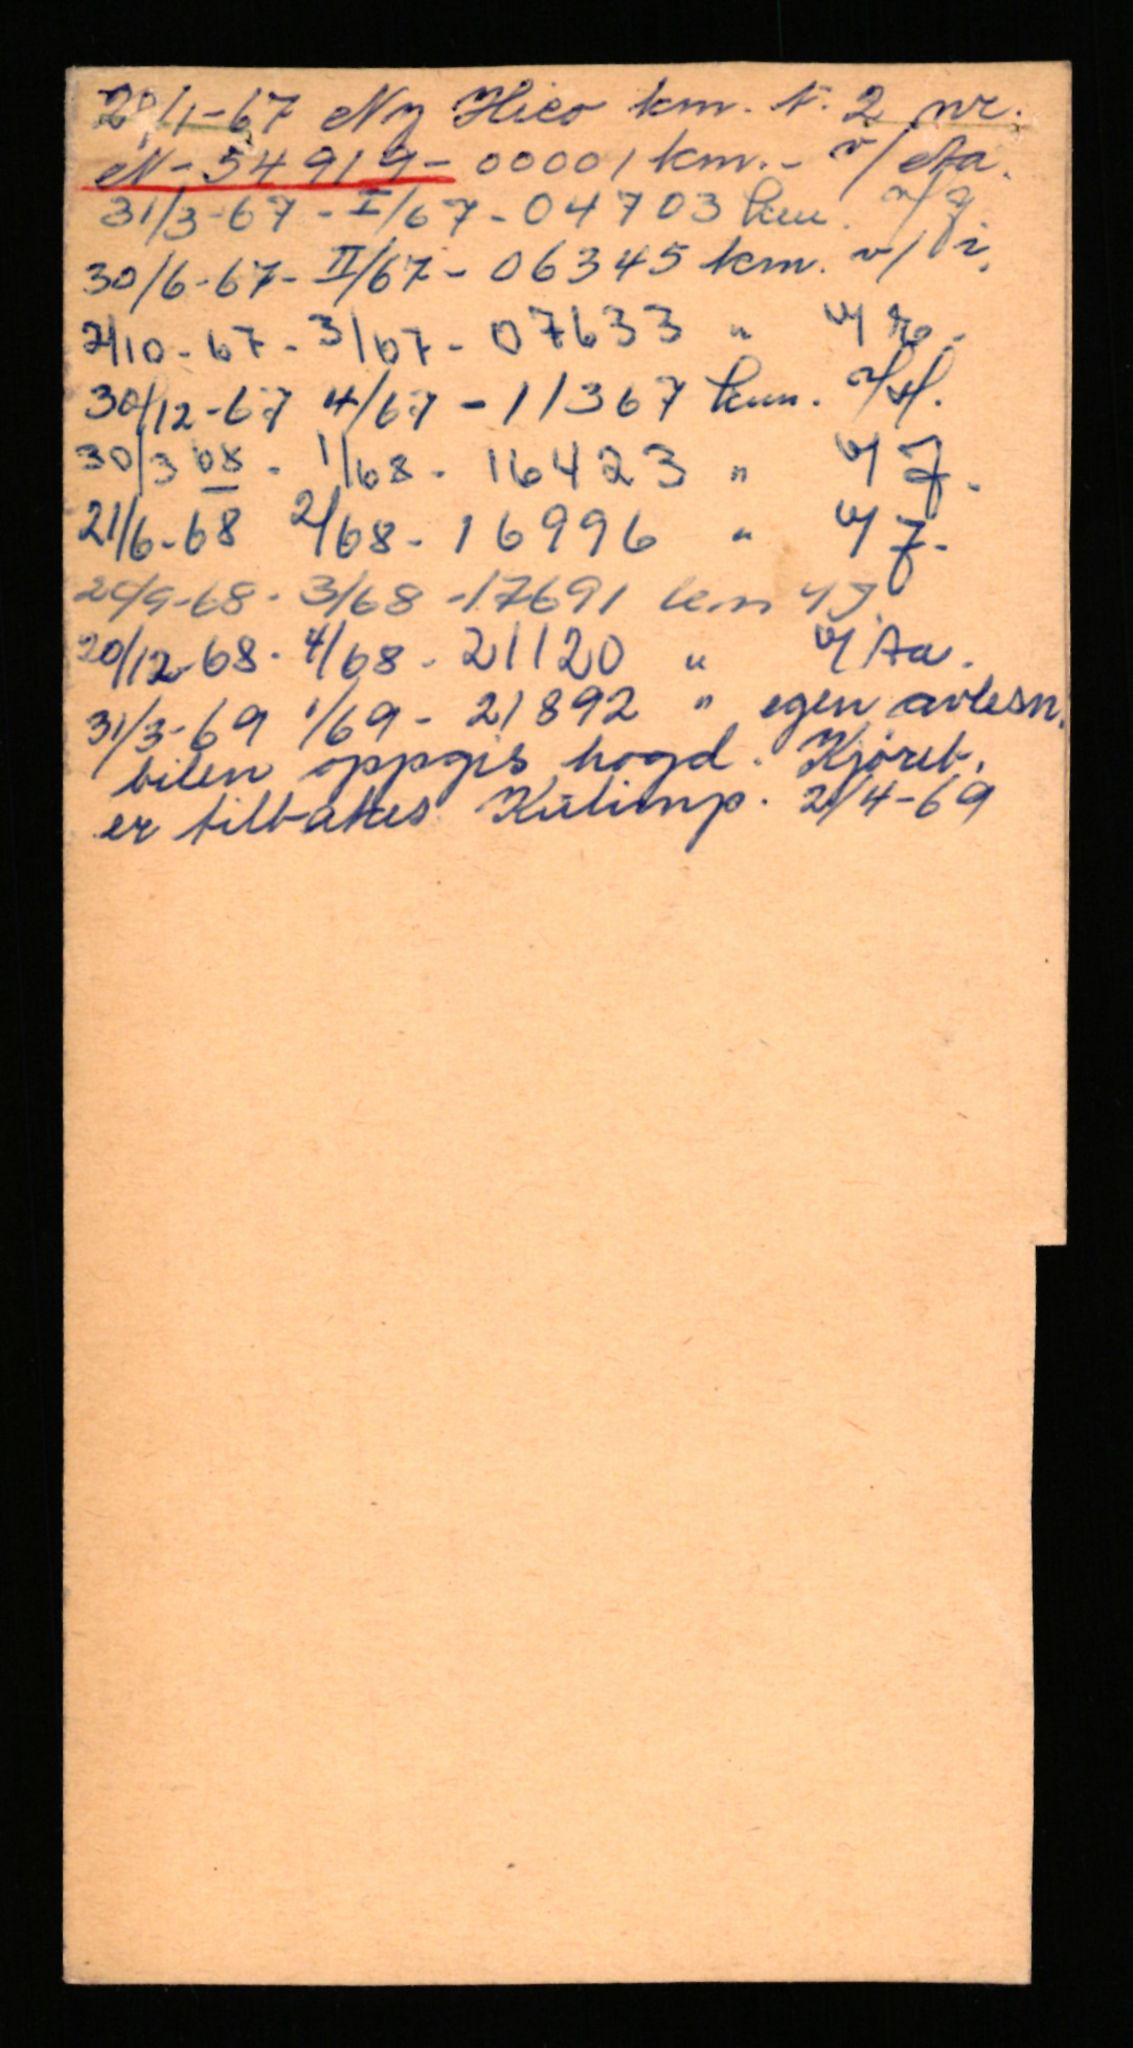 20/1-67 Ny Hico km. t. 2 nr.
N-54919- 00001 km. - v/Aa.
31/3-67 - I/67 - 04703 km. v/
30/6-67 - II/67 - 06345 km. v/
2/10-67 - 3/67 - 07633 " v/
30/12-67 4/67 - 11367 km. v/
30/3 68 - 1/68 - 16423 " v/ J.
21/6-68 2/68 - 16996 " v/ J.
-68 - 3/68 - 17691 km v/J.
20/12-68 - 4/68 - 21120 " v/ Aa.
31/3-69 1/69 - 21892 " egen avlesn.
bilen oppgis hogd. Kjöreb.
er tilbakes. 21/4-69